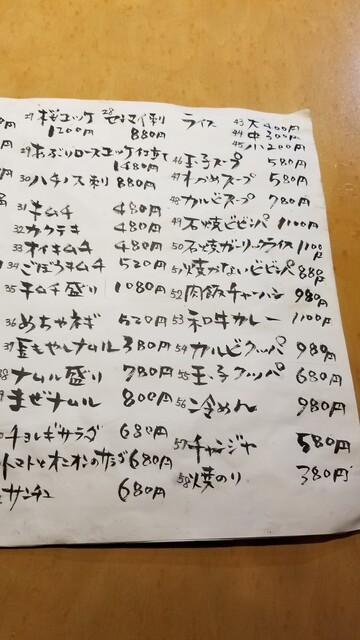 27 桜ユッケ 1200円
28 センマイ刺 880円
29 あぶりロースユッケ仕立て 1480円
30 ハチノス刺 880円
31 キムチ 480円
32 カクテキ 480円
33 オイキムチ 480円
34 ごぼうキムチ 520円
35 キムチ盛り 1080円
36 めちゃネギ 520円
37 金もやしナムル 380円
38 ナムル盛り 780円
まぜナムル 800円
チョレギサラダ 680円
トマトとオニオンのサラダ 680円
サンチュ 680円
ライス
43 大 400円
44 中 300円
45 小 200円
46 玉子スープ 580円
47 わかめスープ 580円
48 カルビスープ 780円
49 石焼ビビンバ 1100円
50 石焼ガーリックライス 1100円
51 焼かないビビンバ 880円
52 肉飯チャーハン 980円
53 和牛カレー 1100円
54 カルビクッパ 980円
55 玉子クッパ 680円
56 冷めん 980円
57 チャンジャ 580円
58 焼のり 380円